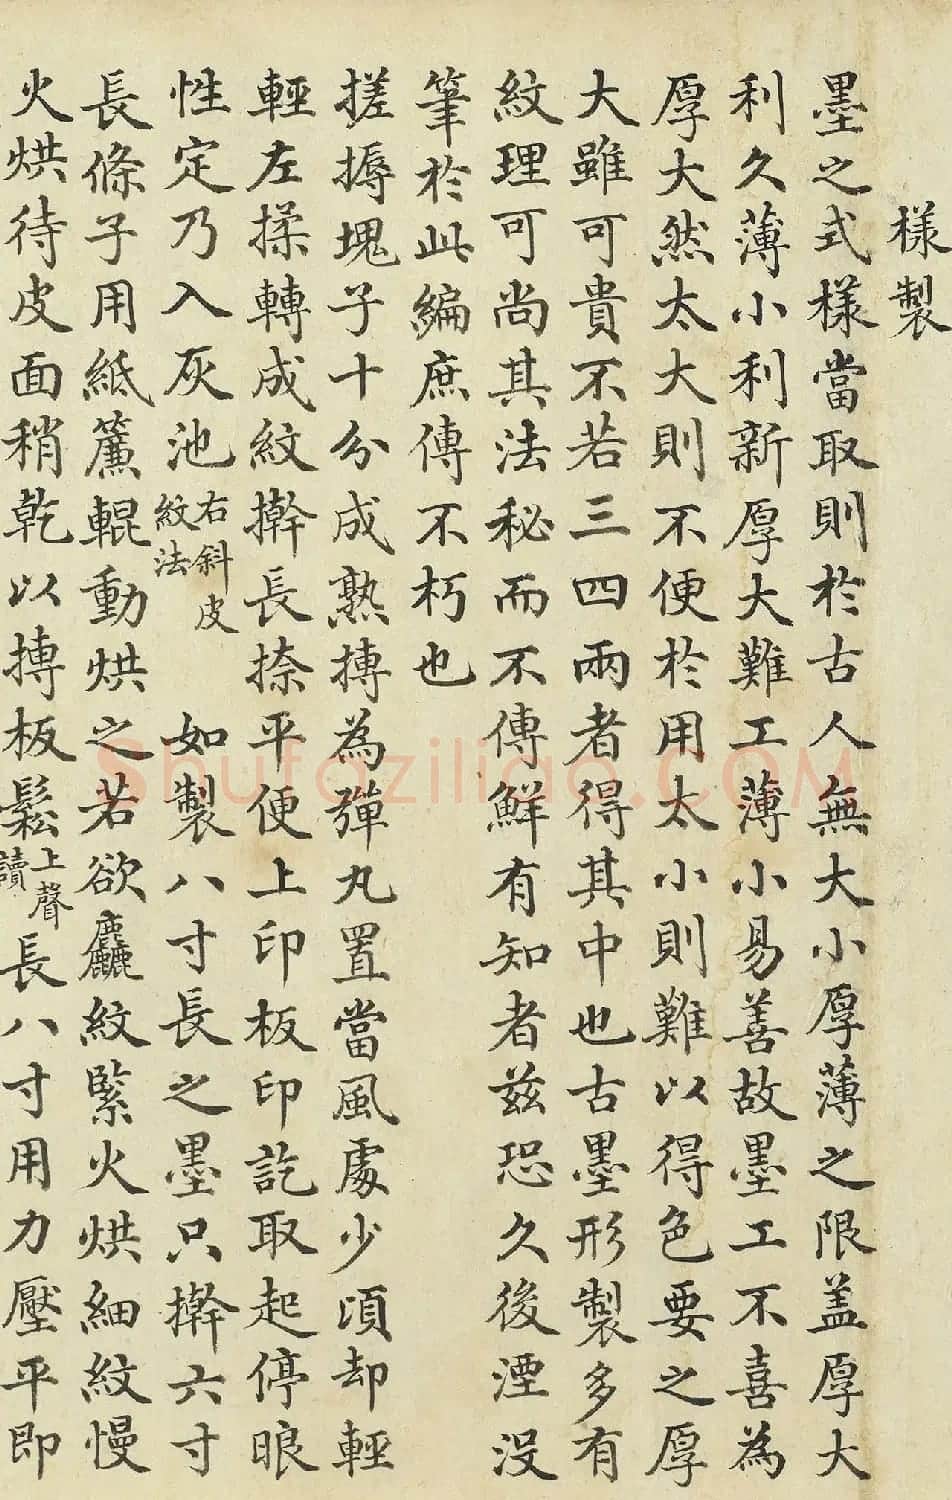 樣製
墨之式樣當取則於古人無大小厚薄之限盖厚大
利久薄小利新厚大難工薄小易善故墨工不喜為
厚大然太大則不便於用太小則難以得色要之厚
大雖可貴不若三四兩者得其中也古墨形製多有
紋理可尚其法秘而不傳鮮有知者兹恐久後湮没
筆於此編庶傳不朽也
搓搙塊子十分成熟摶為彈丸置當風處少頃却輕
輕左揉轉成紋擀長捺平便上印板印訖取起停眼
性定乃入灰池
右斜皮
紋法
如製八寸長之墨只擀六寸
長條子用紙簾輥動烘之若欲麤紋緊火烘細紋慢
火烘待皮面稍乾以摶板鬆
上聲
讀
長八寸用力壓平即
Shufaziliao.COM